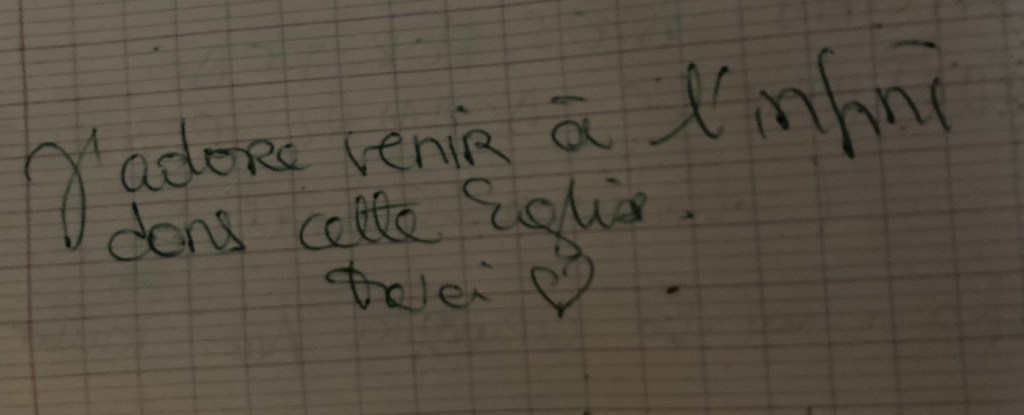 J'adore venir à l'infini
dans cette Eglise.
♡.